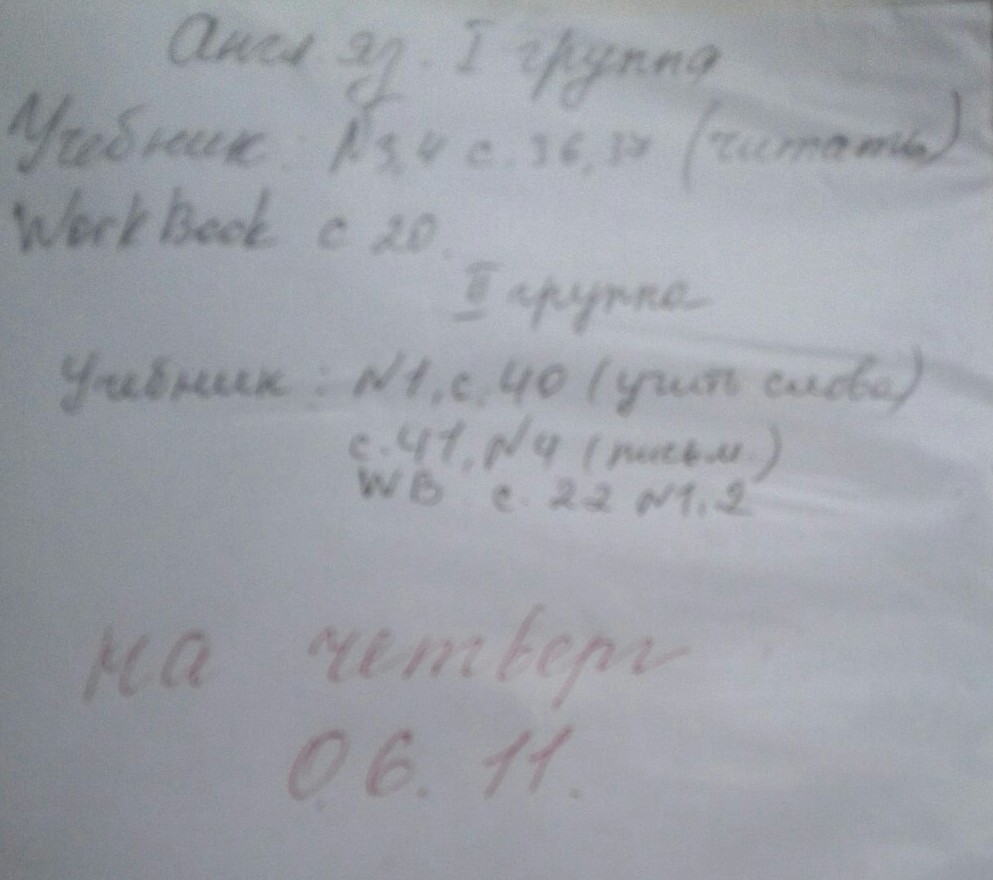 Англ яз. I группа
Учебник: N3,4 с. 36, 37 (читать)
WorkBook с 20.
II группа
Учебник: N1, с. 40 (учить слова)
с. 41, N4 (письм.)
WB с. 22 N1, 2
на четверг
06. 11.